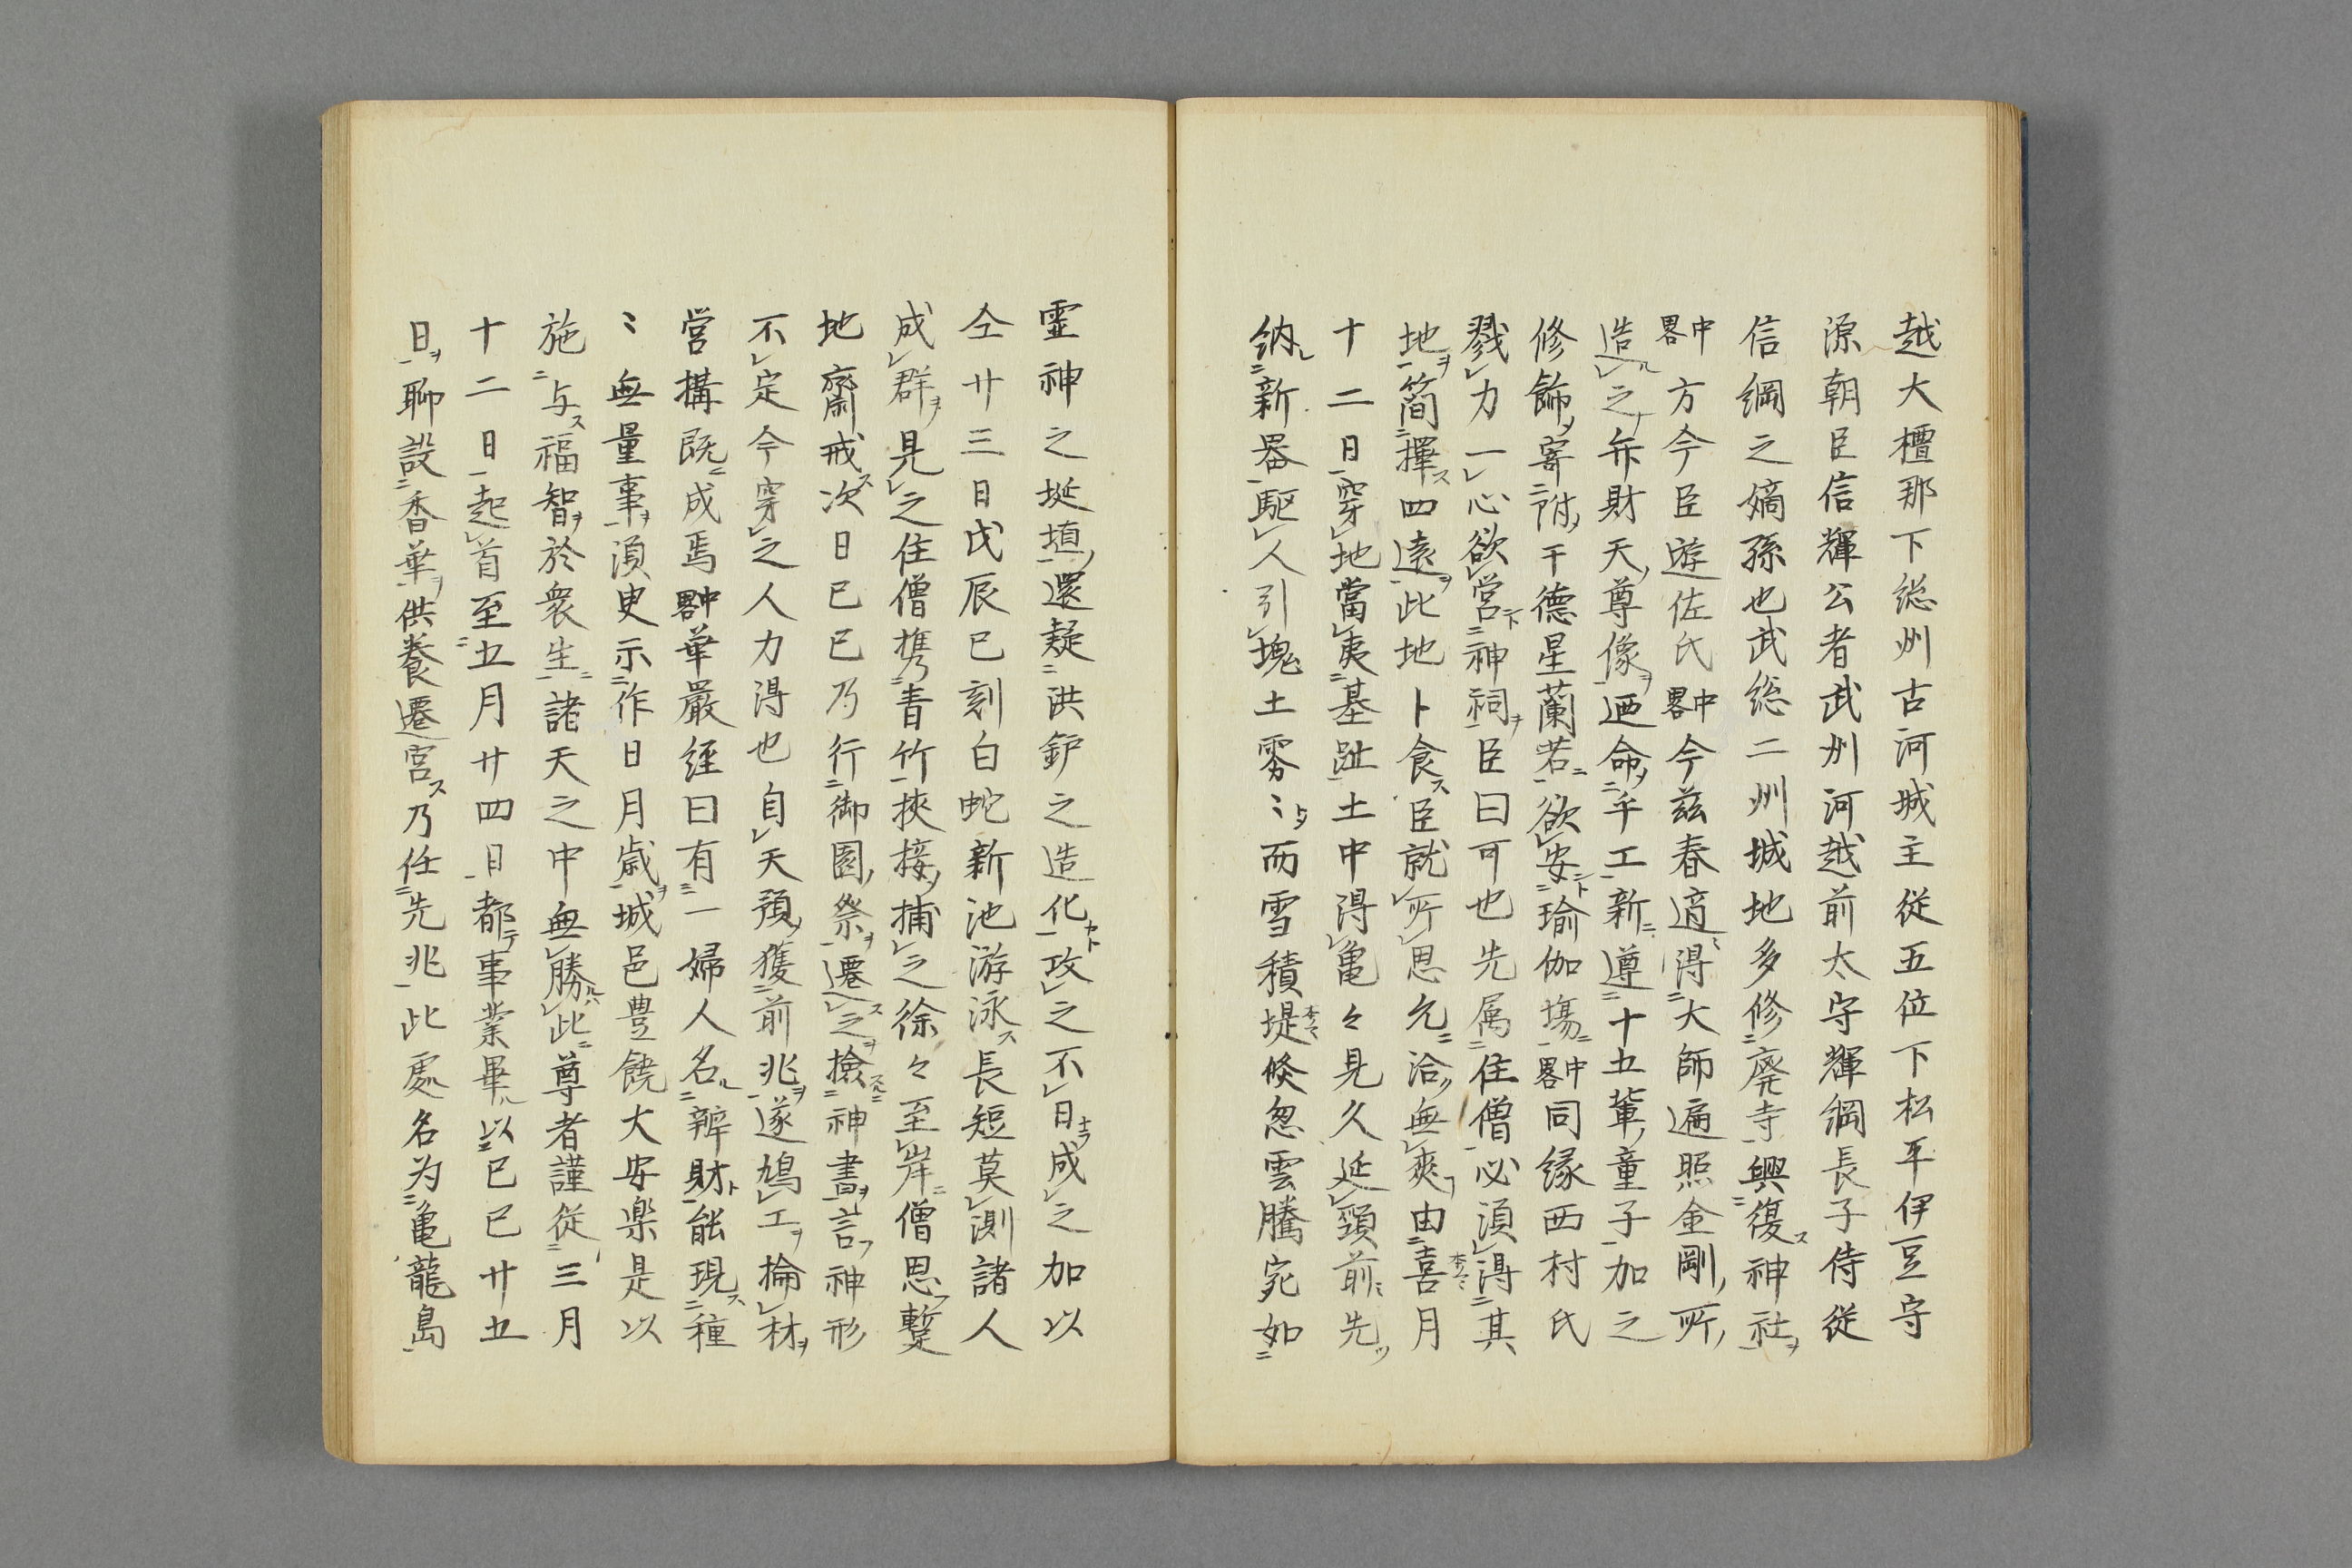 越大檀那下総州古河城主従五位下松平伊豆守
源朝臣信輝公者武州河越前太守輝綱長子侍従
信綱之嫡孫也武総二州城地多修廃寺興復神社
中畧方今臣遊佐氏中畧今茲春適得大師遍照金剛所
造之弁財天尊像廼命乎工新遵十五輩童子加之
修飾寄附于德星蘭若欲安瑜伽場中畧同縁西村氏
戮力一心欲営神祠臣曰可也先属住僧必湏得其
地簡擇四遠此地卜食臣就所思允洽無爽由喜月
十二日穿地當夷基趾土中得亀々見久延頸前先
納新器駆人引塊土雰〻而雪積堤倏忽雲騰宛如
霊神之埏埴還疑洪鈩之造化攻之不日成之加以
仝廿三日戊辰巳刻白蛇新池游泳長短莫測諸人
成群見之住僧携青竹挾接捕之徐々至岸僧思蹔
地齋戒次日己巳乃行御圂祭遷之撿神書言神形
不定今穿之人力淂也自天預獲前兆遂鳩工掄材
営構既成焉中畧華嚴経曰有一婦人名辨財能現種
〻無量事湏臾示作日月歳城邑豊饒大安楽是以
施与福智於衆生諸天之中無勝此尊者謹従三月
十二日起首至五月廿四日都事業畢以己巳廿五
日聊設香華供養遷宮乃任先兆此處名为亀龍島